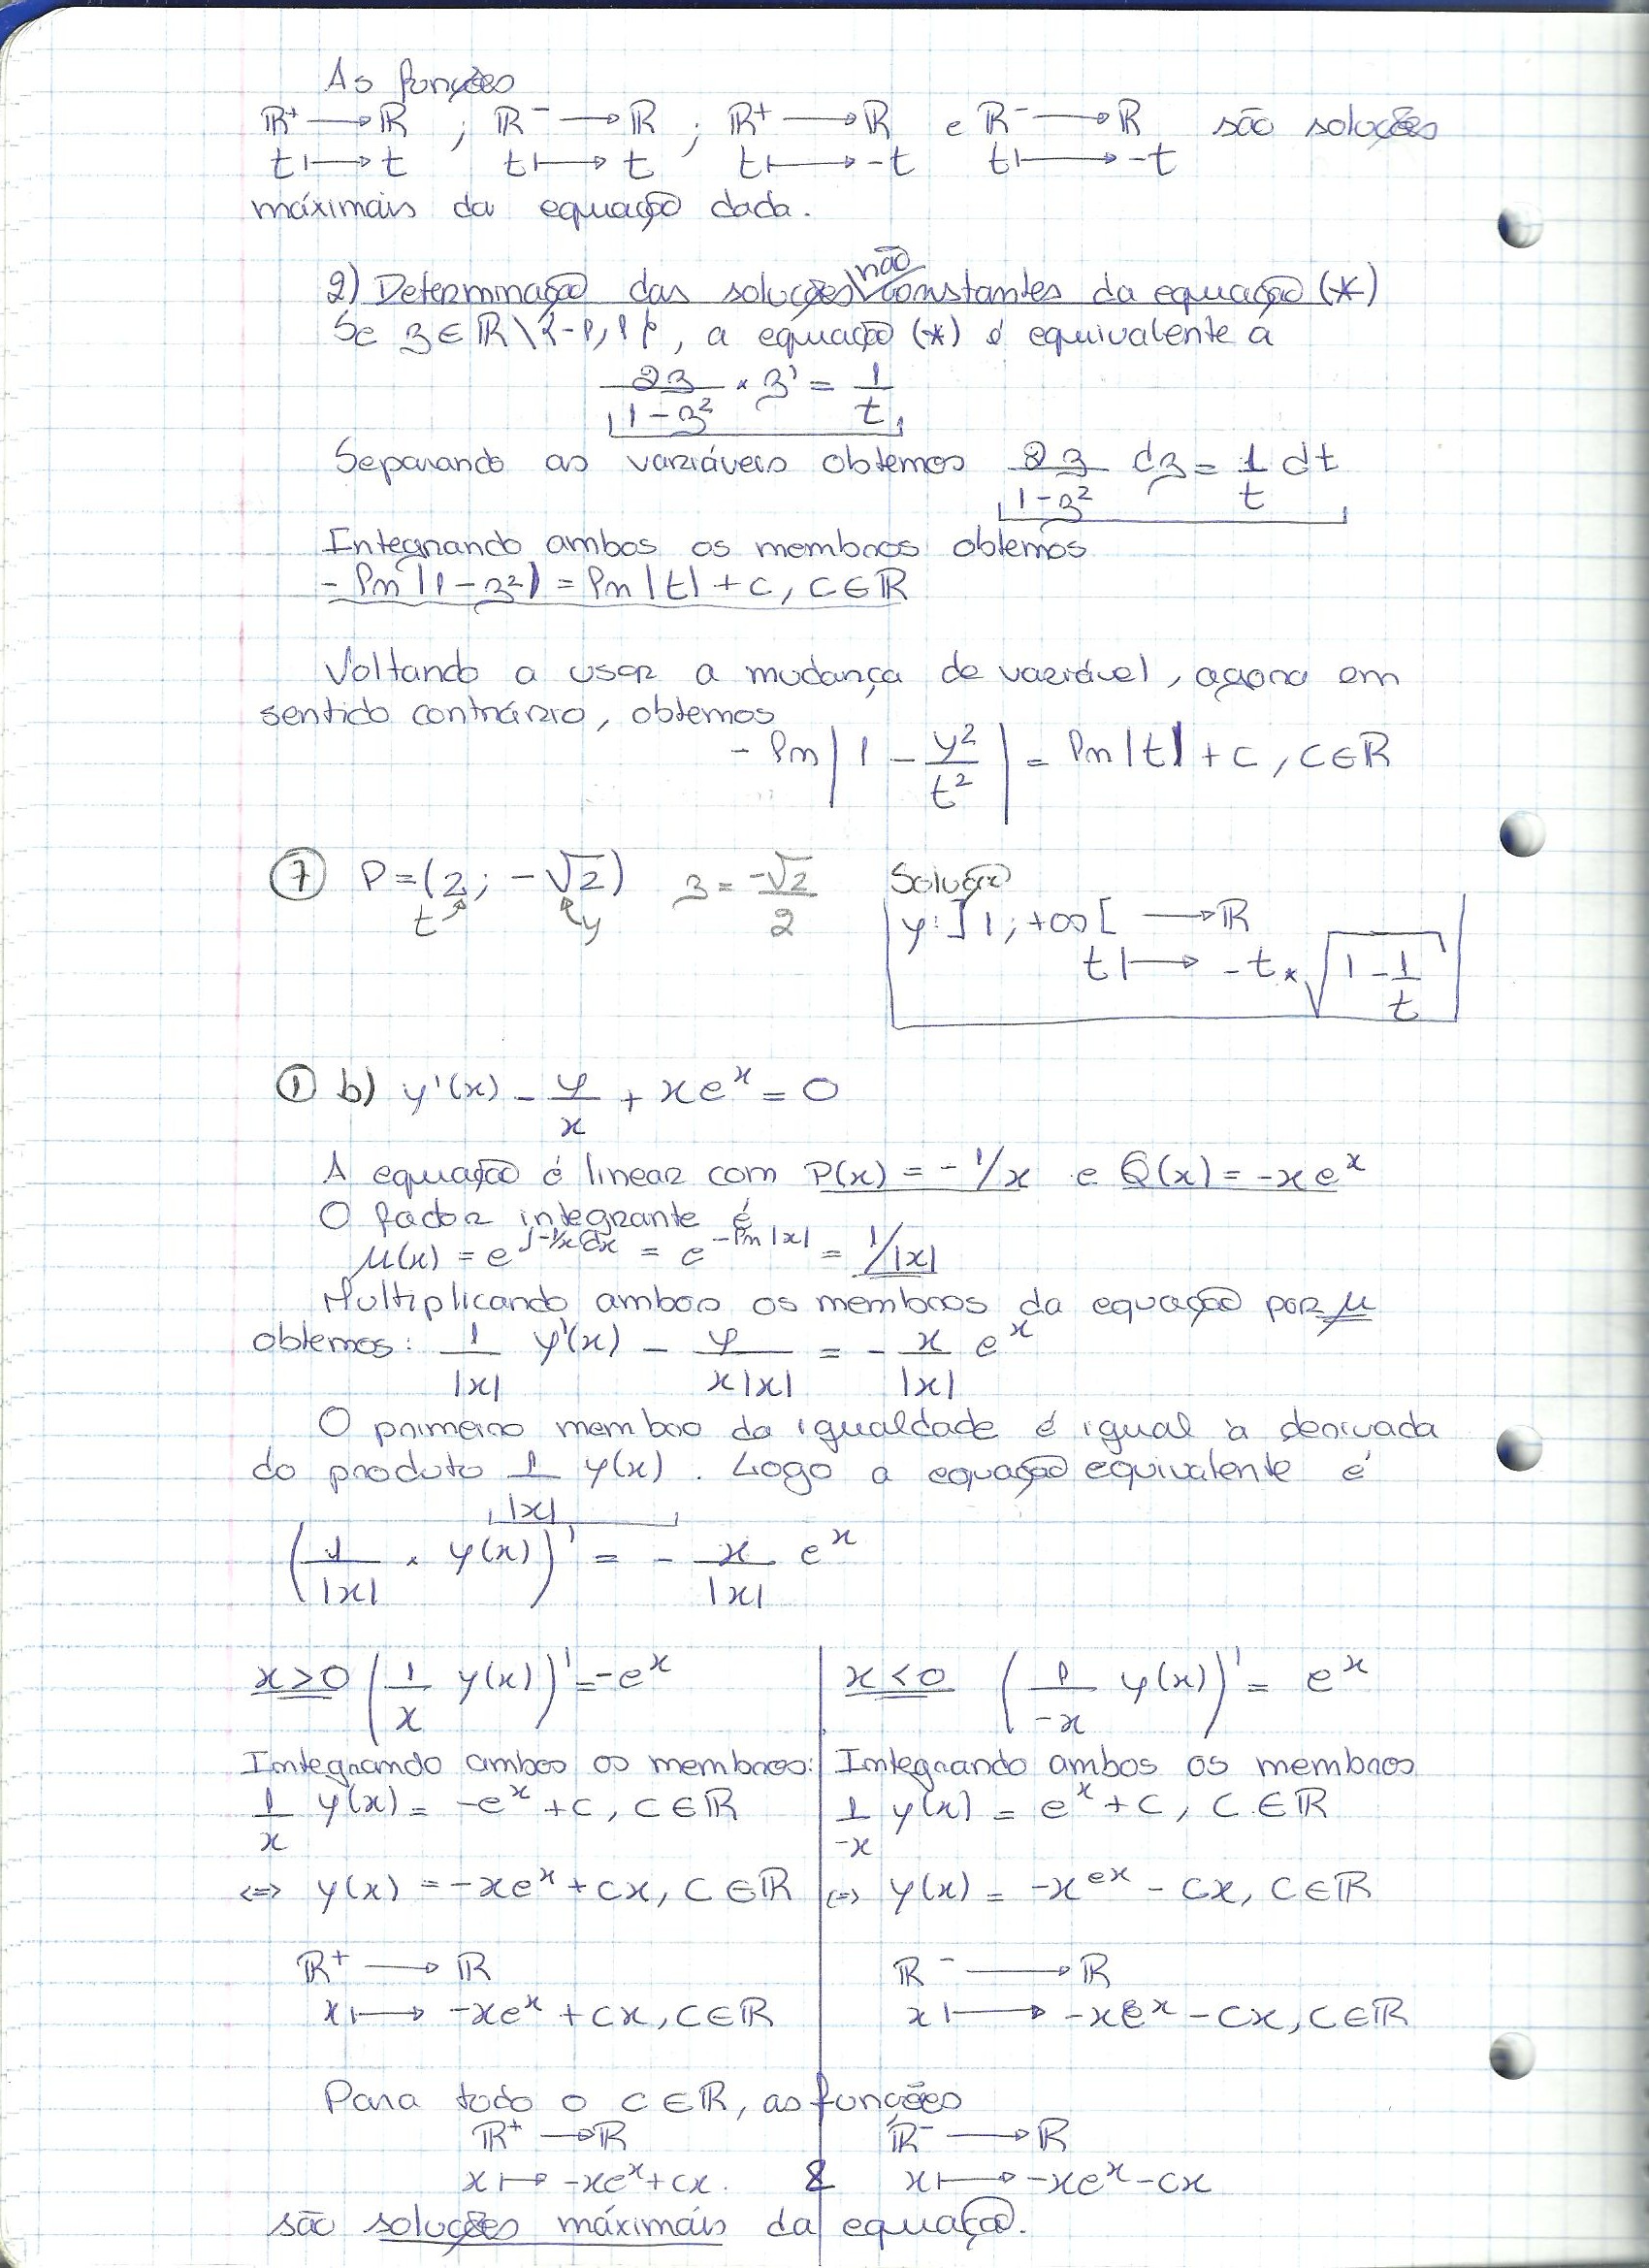 As funções
ℝ⁺ ⟶ ℝ ; ℝ⁻ ⟶ ℝ ; ℝ⁺ ⟶ ℝ e ℝ⁻ ⟶ ℝ são soluções
t ⟼ t   t ⟼ t   t ⟼ -t   t ⟼ -t
máximais da equação dada.
2) Determinação das soluções não constantes da equação (*)
Se z ∈ ℝ\{-1,1}, a equação (*) é equivalente a
2z/(1-z²) × z' = 1/t
Separando as variáveis obtemos 2z/(1-z²) dz = 1/t dt
Integrando ambos os membros obtemos
-ln|1-z²| = ln|t| + c, c∈ℝ
Voltando a usar a mudança de variável, agora em
sentido contrário, obtemos
-ln|1 - y²/t²| = ln|t| + c, c∈ℝ
⑦ P=(2; -√2)   z = -√2/2   Solução
t   y   y: ]1; +∞[ ⟶ ℝ
t ⟼ -t × √(1 - 1/t)
① b) y'(x) - y/x + xeˣ = 0
A equação é linear com P(x) = -1/x e Q(x) = -xeˣ
O factor integrante é
μ(x) = e^(∫-1/x dx) = e^(-ln|x|) = 1/|x|
Multiplicando ambos os membros da equação por μ
obtemos: 1/|x| y'(x) - y/(x|x|) = - x/|x| eˣ
O primeiro membro da igualdade é igual à derivada
do produto 1/|x| y(x). Logo a equação equivalente é
(1/|x| × y(x))' = - x/|x| eˣ
x>0 (1/x y(x))' = -eˣ
Integrando ambos os membros:
1/x y(x) = -eˣ + c, c∈ℝ
⇔ y(x) = -xeˣ + cx, c∈ℝ
ℝ⁺ ⟶ ℝ
x ⟼ -xeˣ + cx, c∈ℝ
x<0 (1/-x y(x))' = eˣ
Integrando ambos os membros
1/-x y(x) = eˣ + c, c∈ℝ
⇔ y(x) = -xeˣ - cx, c∈ℝ
ℝ⁻ ⟶ ℝ
x ⟼ -xeˣ - cx, c∈ℝ
Para todo o c∈ℝ, as funções
ℝ⁺ ⟶ ℝ   ℝ⁻ ⟶ ℝ
x ⟼ -xeˣ + cx. & x ⟼ -xeˣ - cx
são soluções máximais da equação.